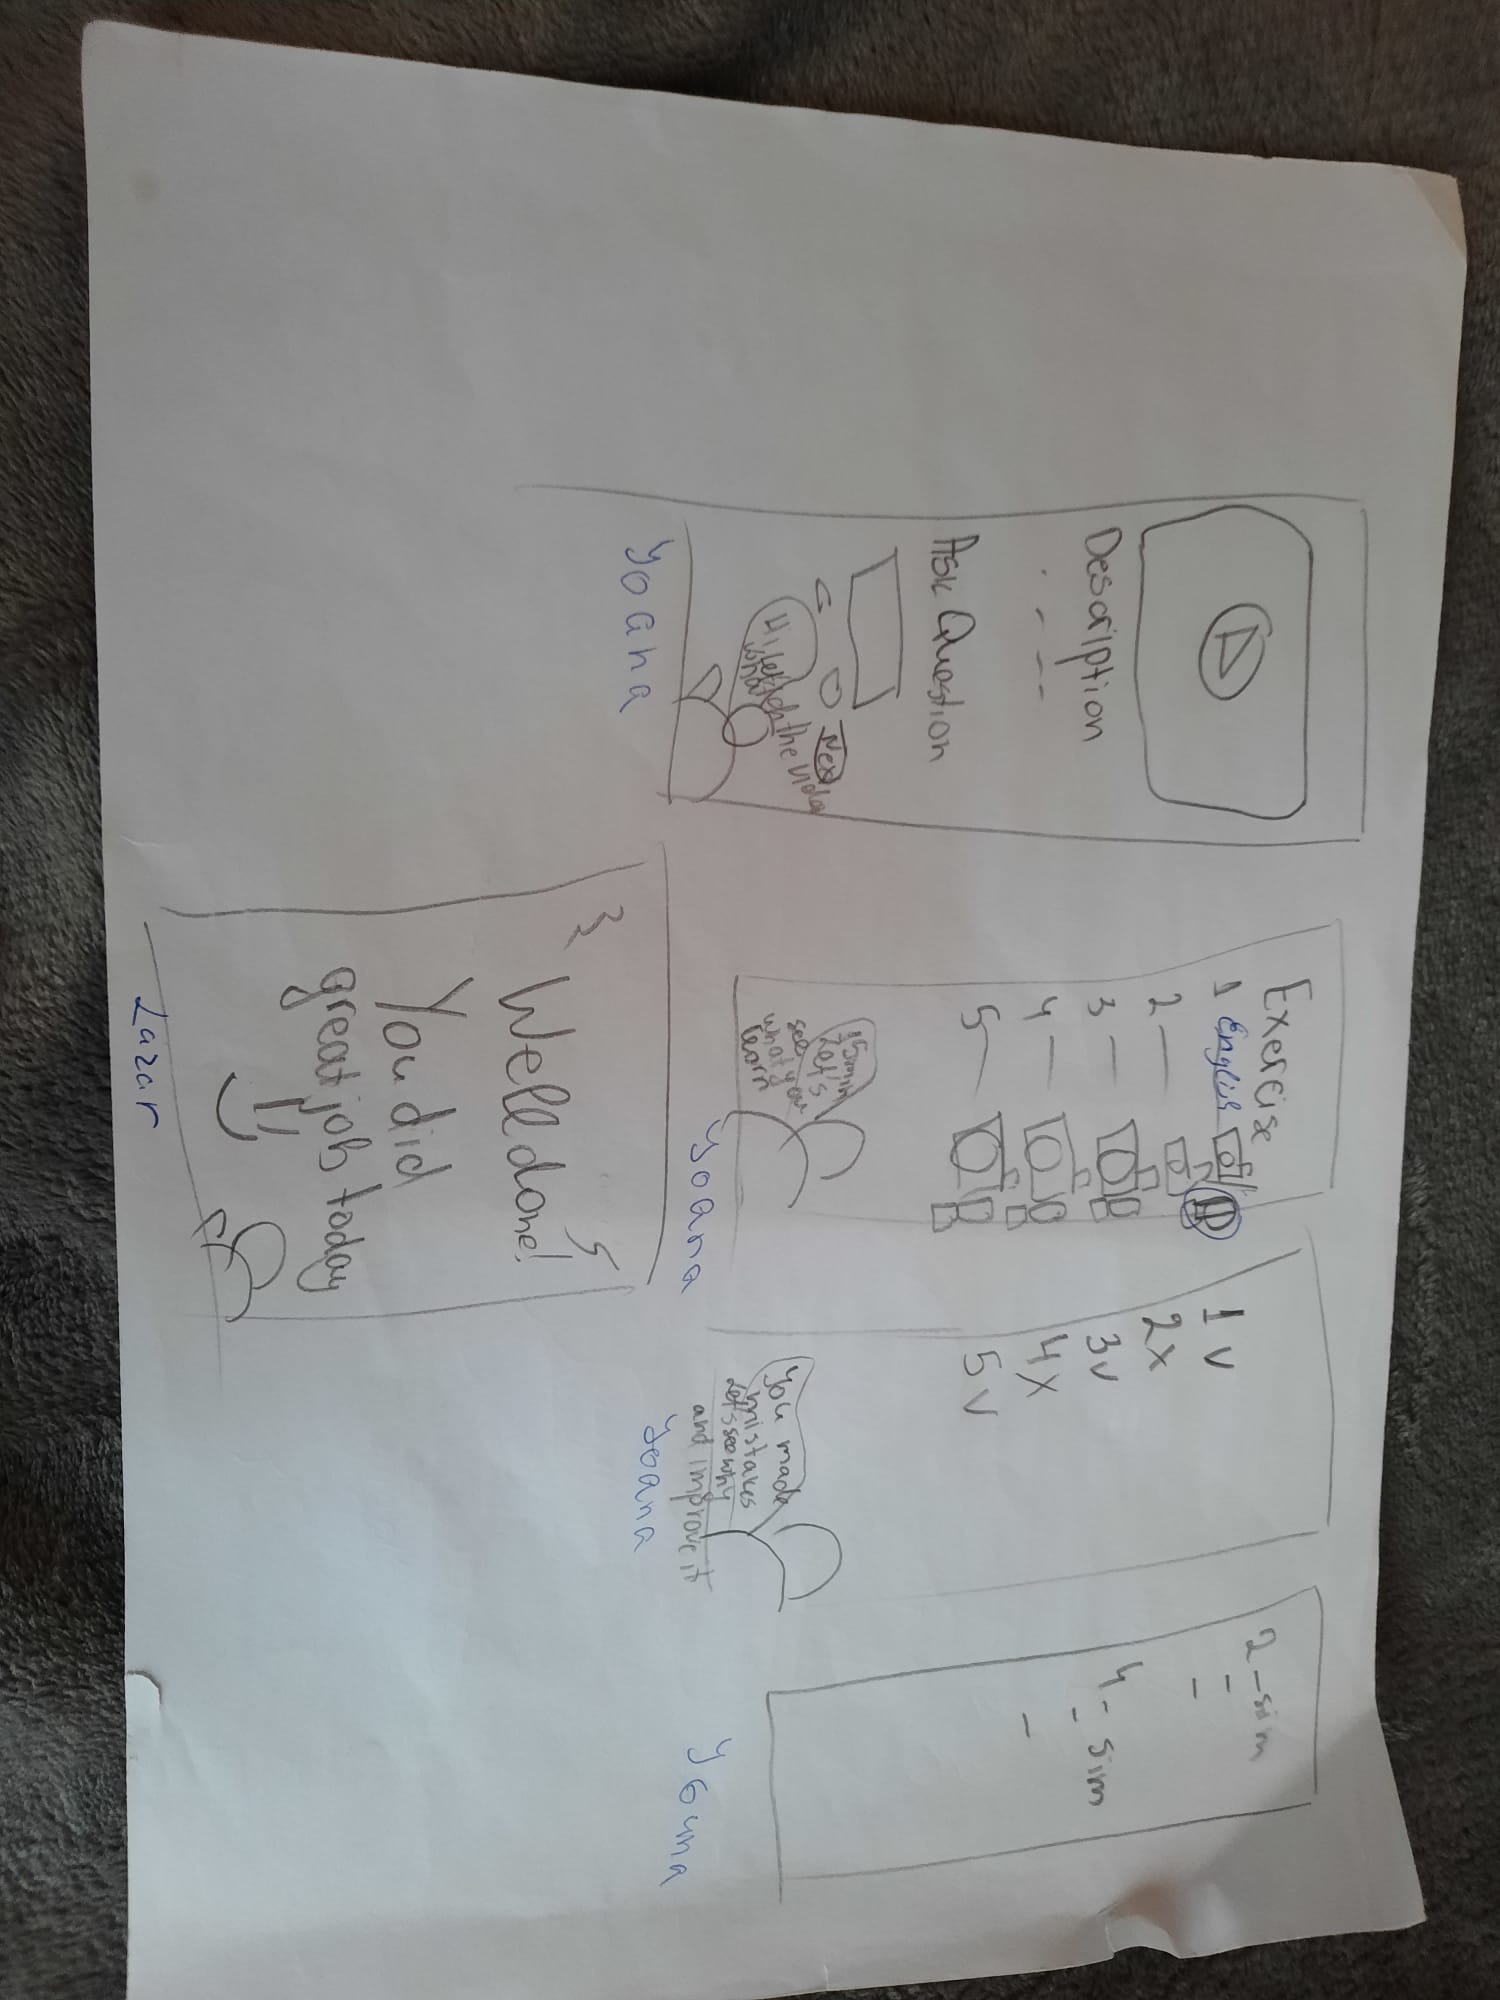 Description
Ask Question
Next
Hi, let's
watch the video
Yoana
Exercise
1 English
2
3
4
5
15min
Let's
see
what you
learn
Yoana
1 v
2 x
3 v
4 x
5 v
You made
mistakes
Let's see why
and improve it
Yoana
2 - sim
4 - sim
Yoana
Well done!
You did
great job today
Lazar